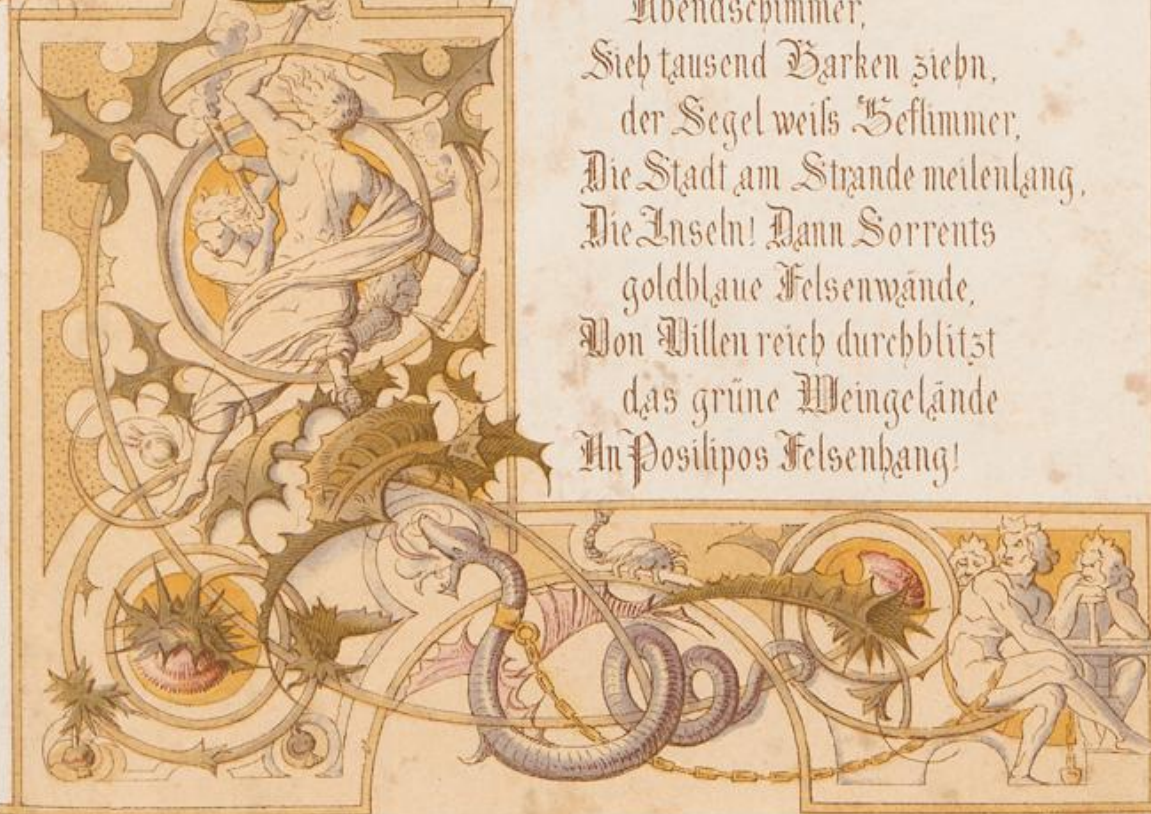 Abendschimmer,
Sieh tausend Barken ziehn,
der Segel weiſs Geflimmer,
Die Stadt am Strande meilenlang,
Die Inseln! Dann Sorrents
goldblaue Felsenwände,
Von Villen reich durchblitzt
das grüne Weingelände
An Posilipos Felsenhang!